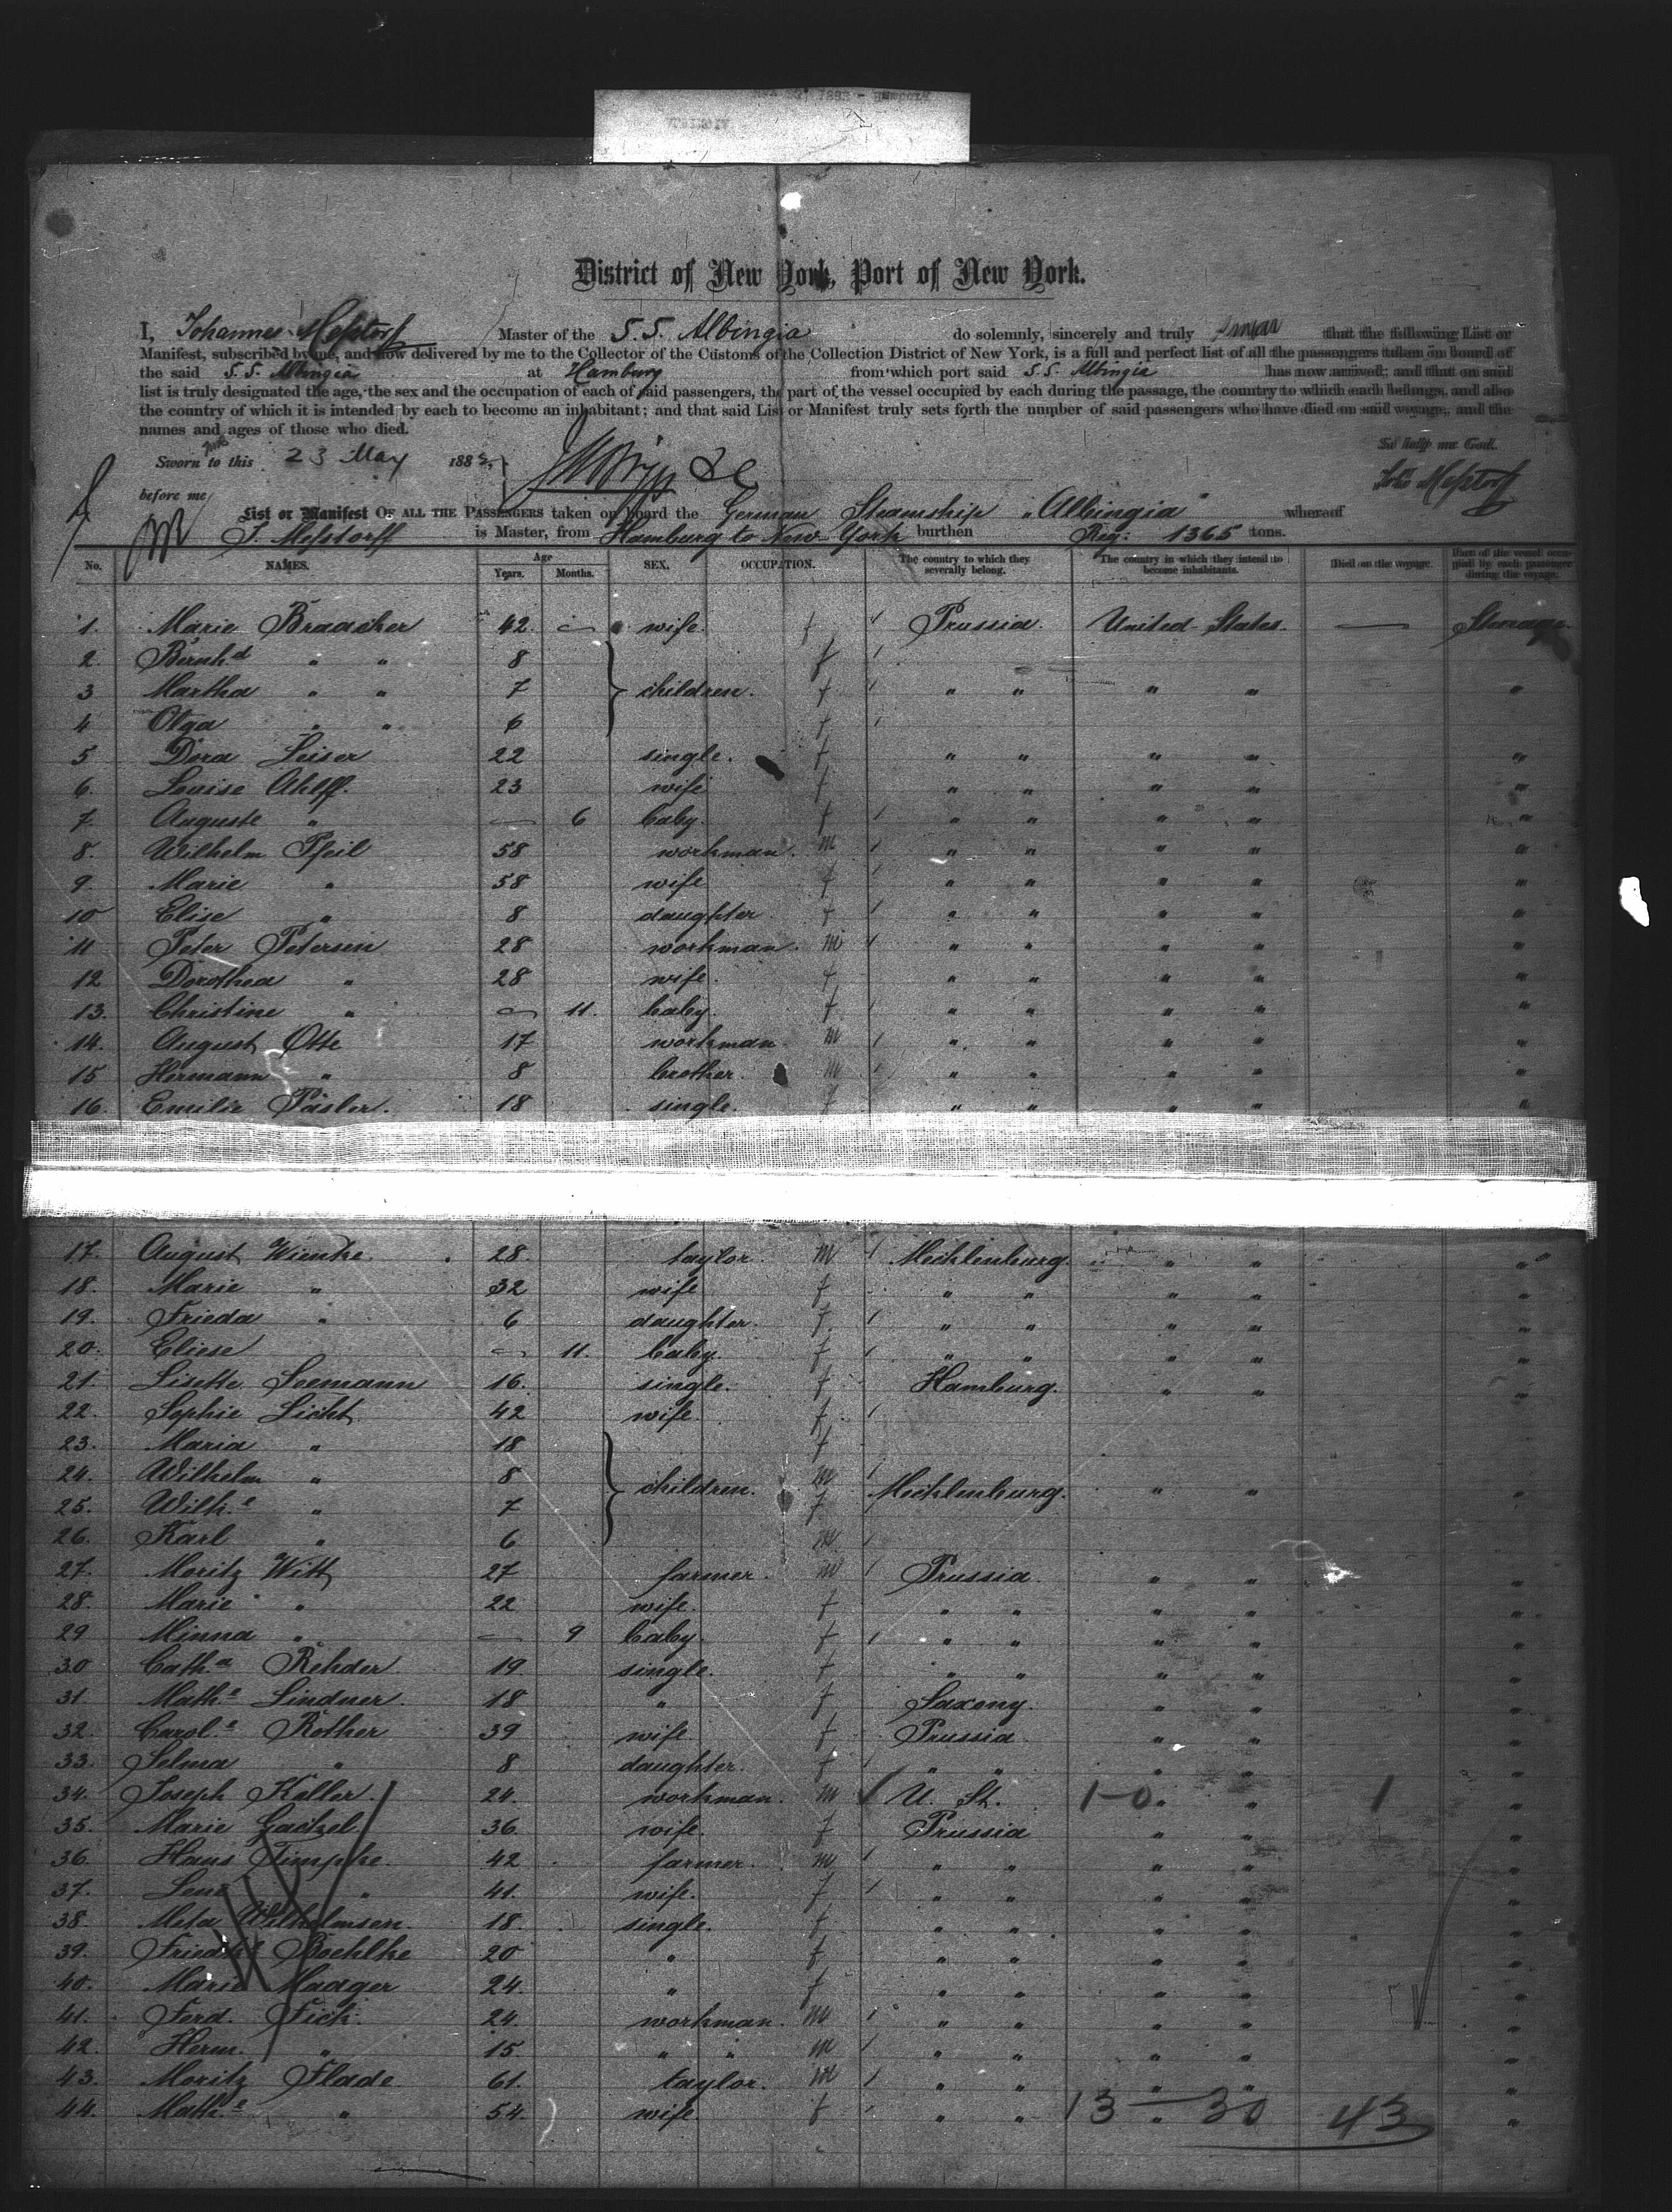 District of New York, Port of New York.
I, Johannes Meſstorff Master of the S.S. Albingia do solemnly, sincerely and truly swear that the following List or
Manifest, subscribed by me, and now delivered by me to the Collector of the Customs of the Collection District of New York, is a full and perfect list of all the passengers taken on board of
the said S.S. Albingia at Hamburg from which port said S.S. Albingia has now arrived; and that on said
list is truly designated the age, the sex and the occupation of each of said passengers, the part of the vessel occupied by each during the passage, the country to which each belongs, and also
the country of which it is intended by each to become an inhabitant; and that said List or Manifest truly sets forth the number of said passengers who have died on said voyage, and the
names and ages of those who died.
So help me God.
Sworn to this 23 May 1883,
Joh. Meſstorff
before me
List or Manifest OF ALL THE PASSENGERS taken on board the German Steamship "Albingia" whereof
J. Meſstorff is Master, from Hamburg to New-York burthen Reg: 1365 tons.
No. NAMES. Age Years. Months. SEX. OCCUPATION. The country to which they severally belong. The country in which they intend to become inhabitants. Died on the voyage. Part of the vessel occupied by each passenger during the voyage.
1. Marie Braacker 42. — wife. f / Prussia. United States. — Steerage.
2. Bernh.d " " 8 f /
3 Martha " " 7 children. f / " " " " "
4 Olga " " 6 f /
5 Dora Leiser 22 single. f " " " " "
6. Louise Ahlff. 23 wife f " " " " "
7. Auguste " — 6 baby. f / " " " " "
8. Wilhelm Pfeil 58 workman. m / " " " " "
9. Marie " 58 wife f / " " " " "
10 Elise " 8 daughter f / " " " " "
11 Peter Petersen 28 workman. m / " " " " "
12 Dorothea " 28 wife. f " " " " "
13. Christine " — 11. baby. f / " " " " "
14. August Otte 17 workman m / " " " " "
15 Hermann " 8 brother. m / " " " " "
16. Emilie Päsler. 18 single. f " " " " "
17. August Wienke. 28. taylor. m / Mecklenburg. " " " "
18. Marie " 32 wife f " " " " "
19. Frieda " 6 daughter. f. / " " " " "
20. Eliese " — 11. baby. f / " " " " "
21. Lisette Seemann 16. single. f Hamburg. " " "
22. Sophie Licht 42 wife. f. /
23. Maria " 18 f
24. Wilhelm " 8 children. m / Mecklenburg. " " "
25. Wilh.e " 7 f
26. Karl " 6 m /
27. Moritz Witt 27 farmer. m / Prussia " " "
28. Marie " 22 wife. f " " " " "
29 Minna " — 9 baby. f / " " " " "
30 Cath.a Rehder 19. single. f " " " " "
31. Math.e Lindner. 18 " f Saxony. " " "
32. Carol.e Rother 39 wife. f Prussia " " "
33. Selma " 8 daughter. f / " " " " "
34. Joseph Koller. 24. workman. m / U. St. 1-0 " " 1 "
35. Marie Gaetzel 36. wife. f Prussia " " "
36. Hans Timpke. 42 farmer. m / " " " " "
37. Lene " 41. wife. f / " " " " "
38. Meta Wilhelmsen. 18. single. f " " " " "
39. Friedke Boehlke 20 " f " " " " "
40. Marie Haager 24. " f " " " " "
41. Ferd. Fick. 24. workman. m / " " " " "
42. Herm. " 15 " " m / " " " " "
43. Moritz Flade 61. taylor. m / " " " " "
44. Math.e " 54. wife. f / " " 13 — 30 43 "